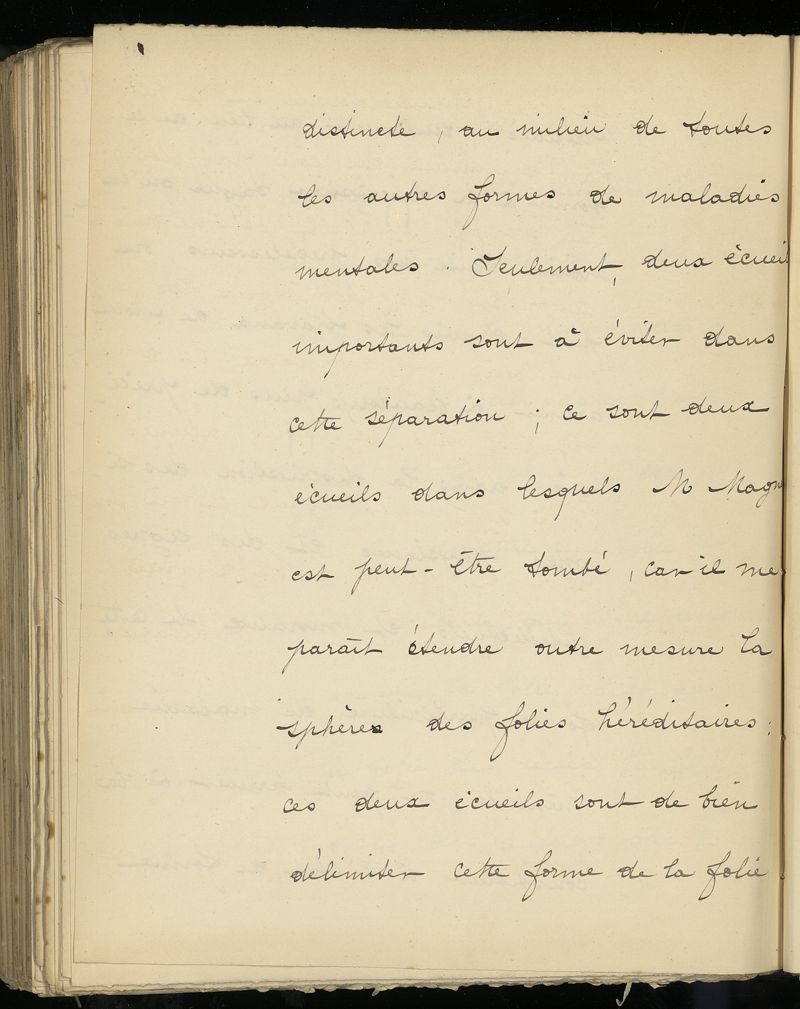 distincte, au milieu de toutes
les autres formes de maladies
mentales. Seulement, deux écueil
importants sont à éviter dans
cette séparation ; ce sont deux
écueils dans lesquels M Magn
est peut-être tombé, car il me
paraît étendre outre mesure la
sphère des folies héréditaires :
ces deux écueils sont de bien
délimiter cette forme de la folie